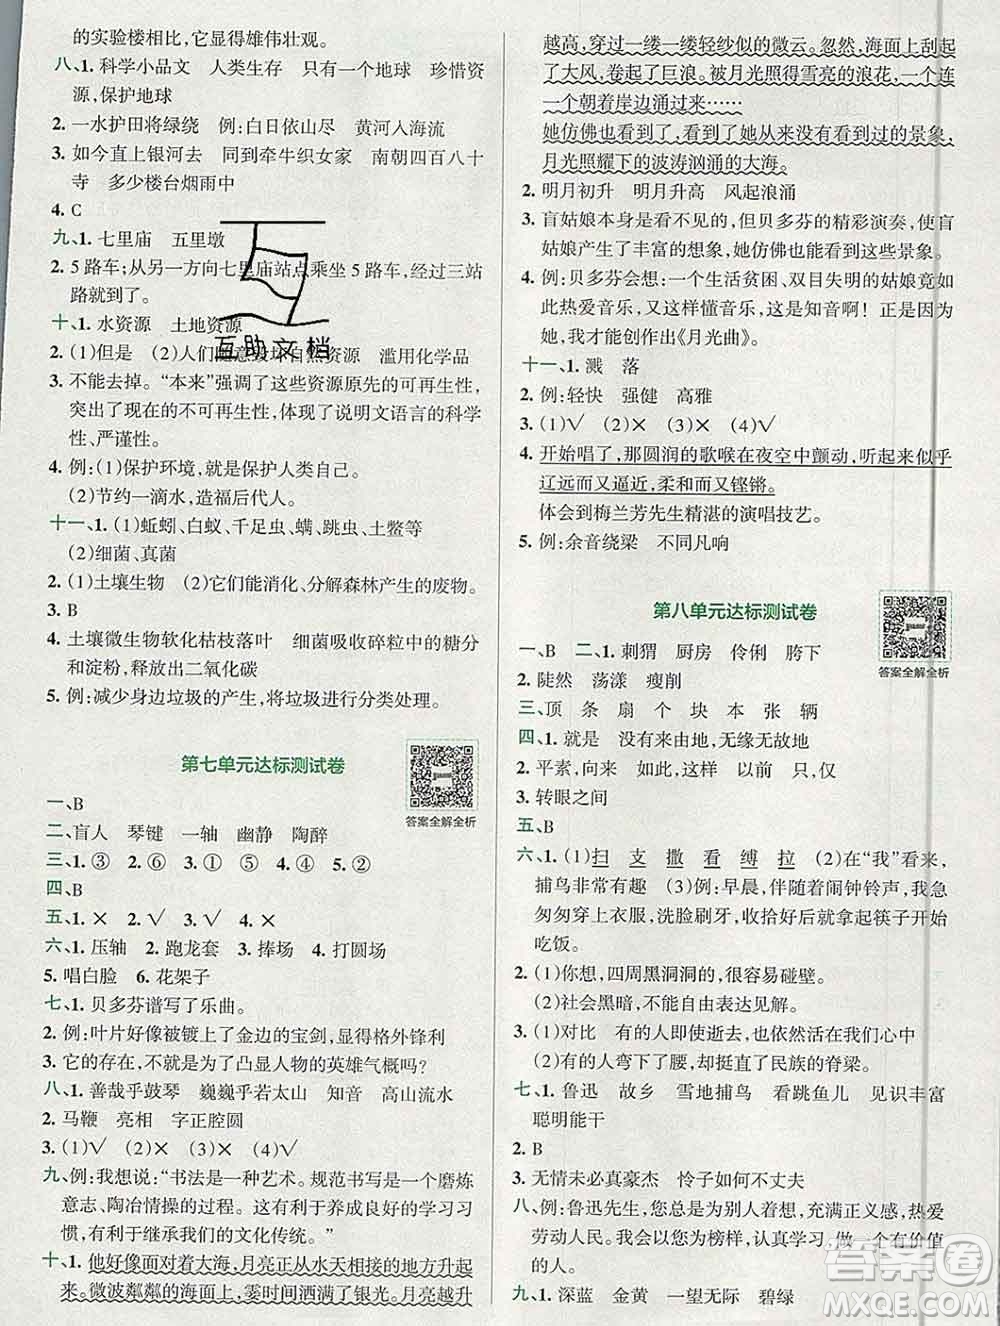 的实验楼相比,它显得雄伟壮观。
八、1. 科学小品文 人类生存 只有一个地球 珍惜资
源,保护地球
2. 一水护田将绿绕 例:白日依山尽 黄河入海流
3. 如今直上银河去 同到牵牛织女家 南朝四百八十
寺 多少楼台烟雨中
4. C
九、1. 七里庙 五里墩
2. 5 路车;从另一方向七里庙站点乘坐 5 路车,经过三站
路就到了。
十、1. 水资源 土地资源
互助文档
2. (1)但是 (2)人们随意毁坏自然资源 滥用化学品
3. 不能去掉。“本来”强调了这些资源原先的可再生性,
突出了现在的不可再生性,体现了说明文语言的科学
性、严谨性。
4. 例:(1)保护环境,就是保护人类自己。
(2)节约一滴水,造福后代人。
十一、1. (1)蚯蚓、白蚁、千足虫、螨、跳虫、土鳖等
(2)细菌、真菌
2. (1)土壤生物 (2)它们能消化、分解森林产生的废物。
3. B
4. 土壤微生物软化枯枝落叶 细菌吸收碎粒中的糖分
和淀粉,释放出二氧化碳
5. 例:减少身边垃圾的产生,将垃圾进行分类处理。
第七单元达标测试卷
答案全解全析
一、B
二、盲人 琴键 一轴 幽静 陶醉
三、1. ③ 2. ⑥ 3. ① ⑤ 4. ④ 5. ②
四、B
五、1. × 2. √ 3. √ 4. ×
六、1. 压轴 2. 跑龙套 3. 捧场 4. 打圆场
5. 唱白脸 6. 花架子
七、1. 贝多芬谱写了乐曲。
2. 例:叶片好像被镀上了金边的宝剑,显得格外锋利
3. 它的存在,不就是为了凸显人物的英雄气概吗?
八、1. 善哉乎鼓琴 巍巍乎若太山 知音 高山流水
2. 马鞭 亮相 字正腔圆
3. (1)√ (2)× (3)× (4)√
九、例:我想说:“书法是一种艺术。规范书写是一个磨炼
意志、陶冶情操的过程。这有利于养成良好的学习习
惯,有利于继承我们的文化传统。”
十、1. 他好像面对着大海,月亮正从水天相接的地方升起
来。微波粼粼的海面上,霎时间洒满了银光。月亮越升
越高,穿过一缕一缕轻纱似的微云。忽然,海面上刮起
了大风,卷起了巨浪。被月光照得雪亮的浪花,一个连
一个朝着岸边涌过来……
她仿佛也看到了,看到了她从来没有看到过的景象,
月光照耀下的波涛汹涌的大海。
2. 明月初升 明月升高 风起浪涌
3. 盲姑娘本身是看不见的,但贝多芬的精彩演奏,使盲
姑娘产生了丰富的想象,她仿佛也看见了这些景象。
4. 例:贝多芬会想:一个生活贫困、双目失明的姑娘竟如
此热爱音乐,又这样懂音乐,这就是知音啊! 正是因为
她,我才能创作出《月光曲》。
十一、1. 溅 落
2. 例:轻快 强健 高雅
3. (1)√ (2)× (3)× (4)√
4. 开始唱了,那圆润的歌喉在夜空中颤动,听起来似乎
辽远而又逼近,柔和而又铿锵。
体会到梅兰芳先生精湛的演唱技艺。
5. 例:余音绕梁 不同凡响
第八单元达标测试卷
答案全解全析
一、B 二、1. 刺猬 厨房 伶俐 胯下
2. 陡然 荡漾 瘦削
三、顶 条 扇 个 块 本 张 辆
四、1. 就是 没有来由地,无缘无故地
2. 平素,向来 如此,这样 以前 只,仅
3. 转眼之间
五、B
六、1. (1)扫 支 撒 看 缚 拉 (2)在“我”看来,
捕鸟非常有趣 (3)例:早晨,伴随着闹钟铃声,我急
匆匆穿上衣服,洗脸刷牙,快速地拿起筷子开始
吃饭。
2. (1)你想,四周黑洞洞的,很容易碰壁。
(2)社会黑暗,不允许人们发表进步见解。
3. (1)对比 有的人即使逝去,也依然活在我们心中
(2)有的人弯下了腰,却挺直了民族的脊梁。
七、1. 鲁迅 故乡 雪地捕鸟 看跳鱼儿 见识丰富
聪明能干
2. B
3. 无情未必真豪杰 怜子如何不丈夫
八、例:鲁迅先生,您总是为别人着想,充满正义感,热爱
劳动人民。我要向您学习,做一个有价值
的人。
九、1. 深蓝 金黄 一望无际 碧绿
答案圈
MXQE.COM